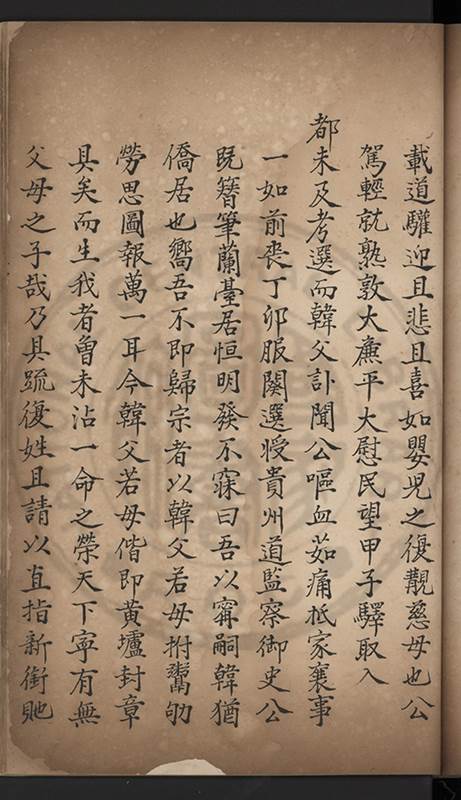 載道驩迎且悲且喜如嬰児之復覯慈母也公
駕輕就熟敦大亷平大慰民望甲子驛取入
都未及考選而韓父訃聞公嘔血茹痛柢家襄事
一如前喪丁卯服闋選授貴州道監察御史公
既簪筆蘭臺居恒明發不寐曰吾以甯嗣韓猶
僑居也嚮吾不即歸宗者以韓父若母拊鬻劬
勞思圖報萬一耳今韓父若母偕即黄壚封章
具矣而生我者曾未沾一命之榮天下寧有無
父母之子哉乃具疏復姓且請以直指新銜貤